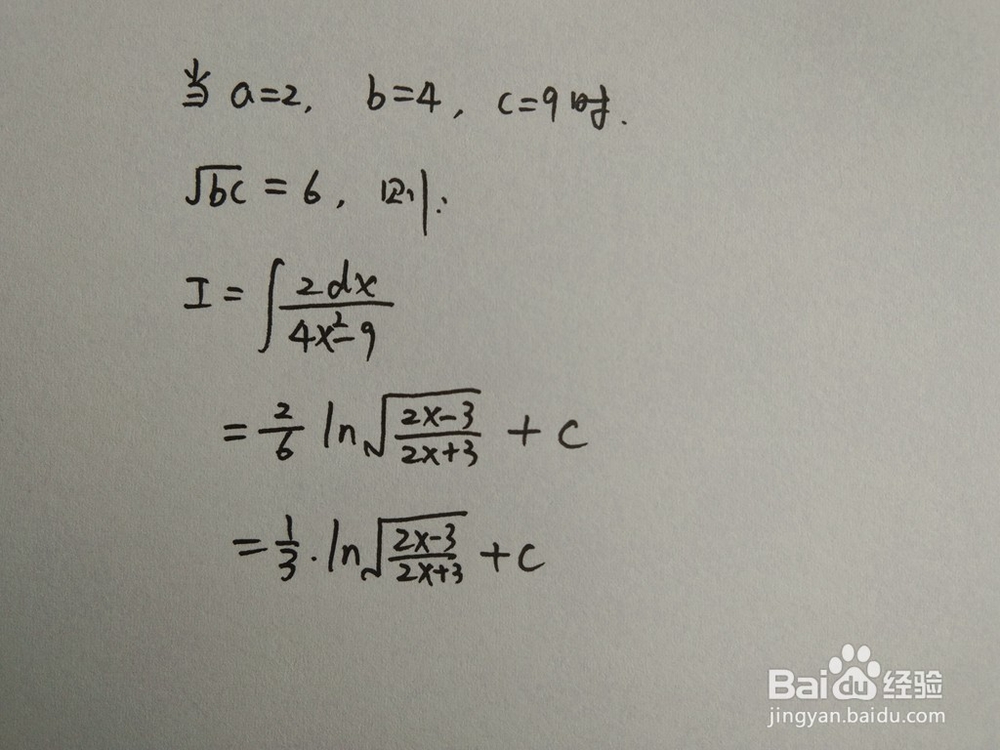 当 a=2, b=4, c=9 时.
√bc = 6, 则:
I = ∫ 2dx / 4x²-9
= 2/6 ln √(2x-3 / 2x+3) + c
= 1/3 · ln √(2x-3 / 2x+3) + c
Baidu经验
jingyan.baidu.com